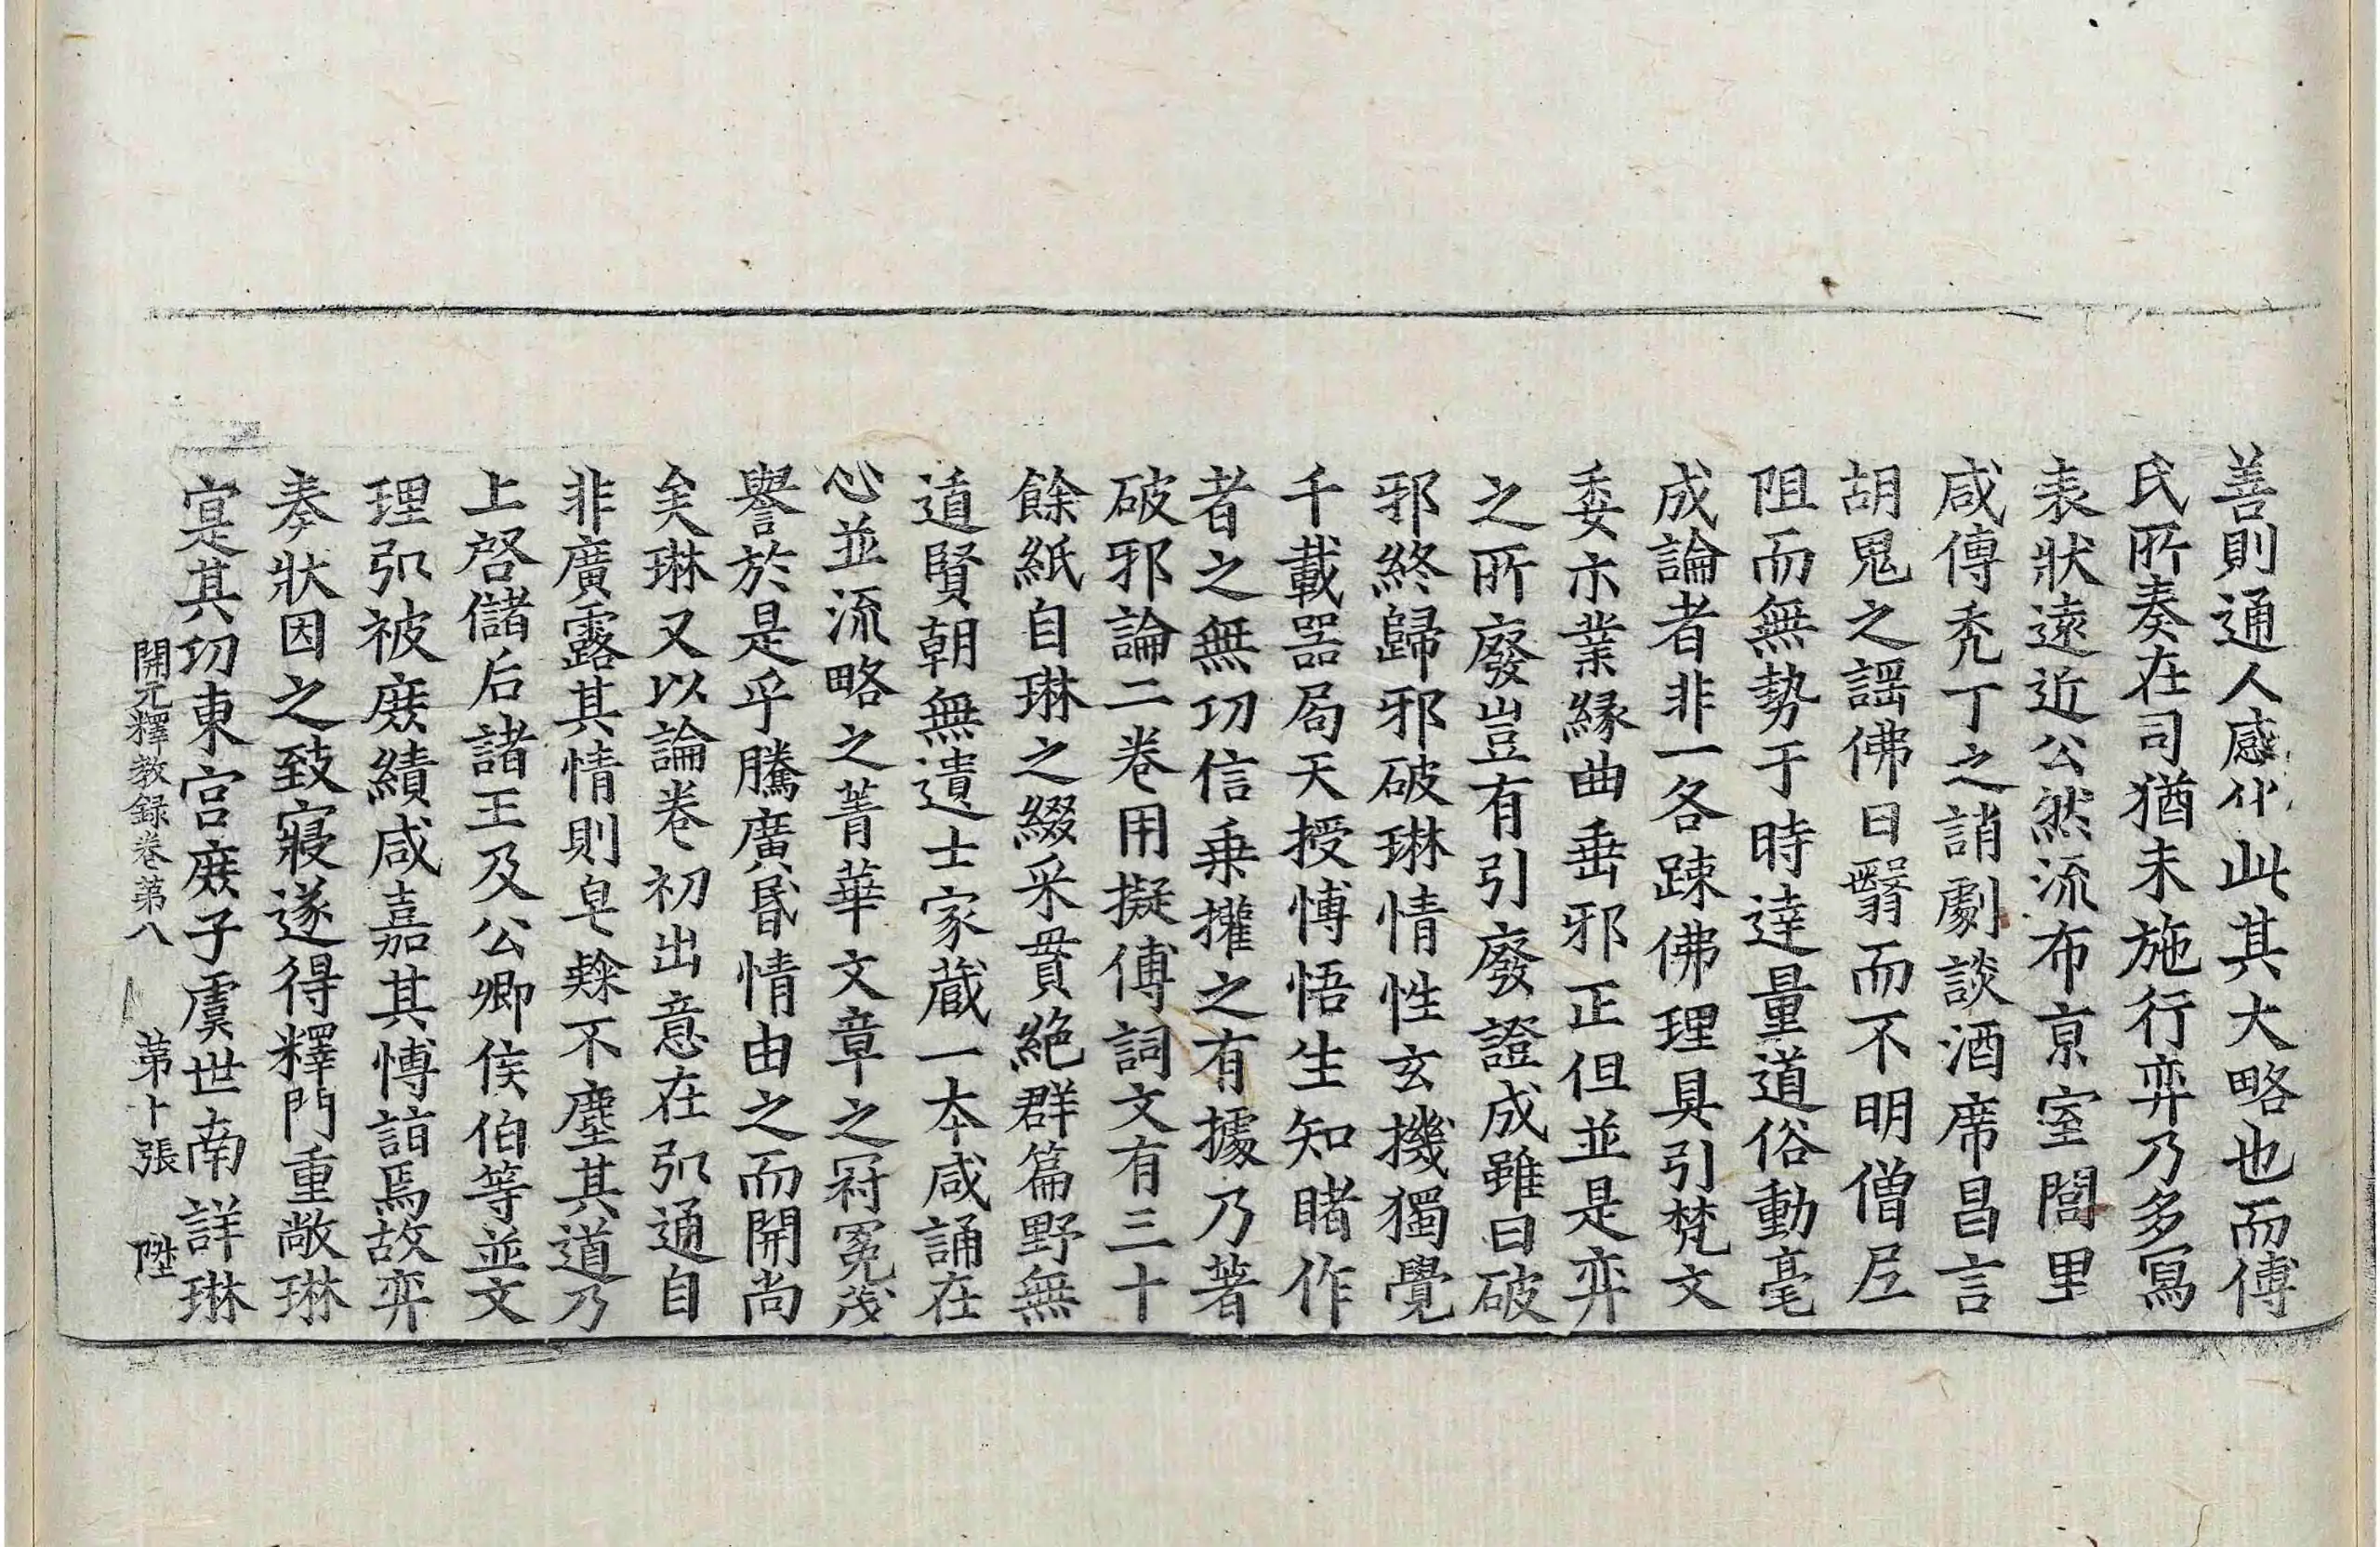 善則通人感化此其大略也而傅
氏所奏在司猶未施行弈乃多寫
表狀遠近公然流布京室閭里
咸傳禿丁之誚劇談酒席昌言
胡鬼之謡佛日翳而不明僧尼
阻而無勢于時達量道俗動毫
成論者非一各踈佛理具引梵文
委示業縁曲垂邪正但並是弈
之所廢豈有引廢證成雖曰破
邪終歸邪破琳情性玄機獨覺
千載器局天授博悟生知睹作
者之無功信乗權之有據乃著
破邪論二卷用擬傅詞文有三十
餘紙自琳之綴采貫絶群篇野無
道賢朝無遺士家藏一本咸誦在
心並流略之菁華文章之冠冕茂
譽於是乎騰廣昬情由之而開尚
矣琳又以論卷初出意在弘通自
非廣露其情則皂隸不塵其道乃
上啓儲后諸王及公卿侯伯等並文
理弘被庶績咸嘉其博詣焉故弈
奏狀因之致寢遂得釋門重敞琳
寔其功東宮庶子虞世南詳琳
開元釋教録卷第八 第十張 陞